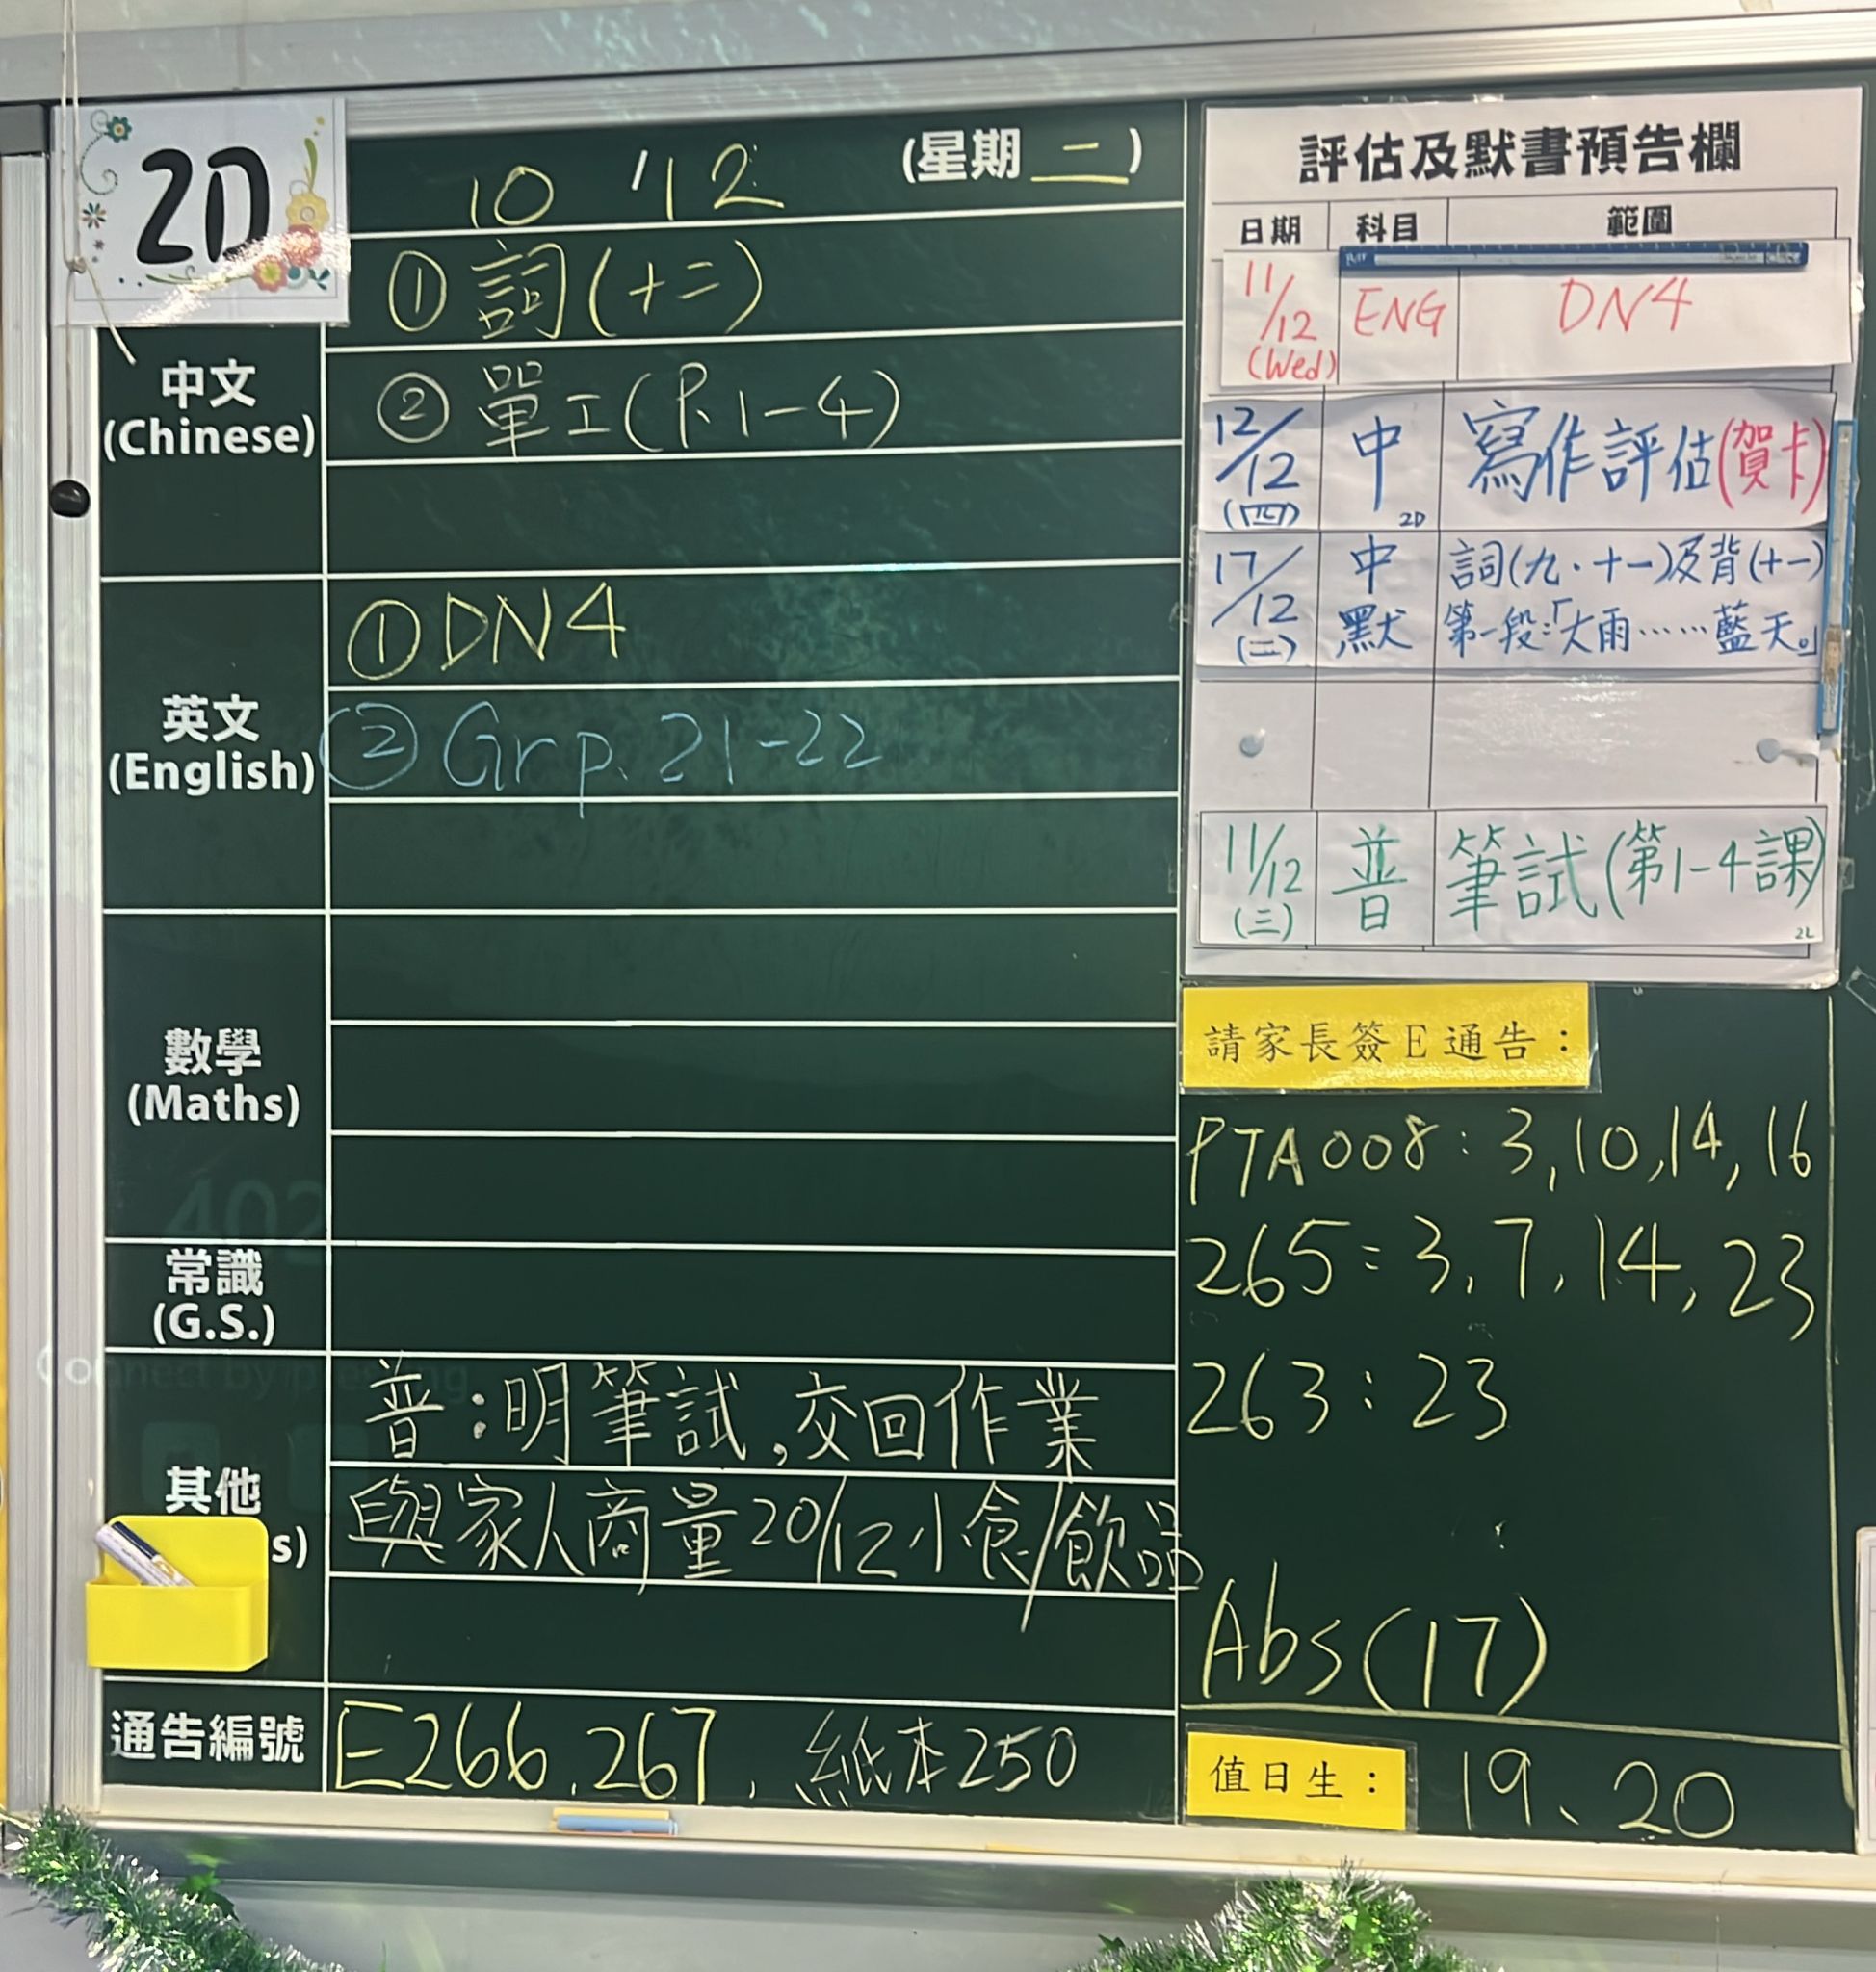 2D
10 '12 (星期 二 )
① 詞(十二)
中文
(Chinese)
② 單工(P.1-4)
英文
(English)
① DN4
② Gr p. 21-22
數學
(Maths)
常識
(G.S.)
其他
s)
普:明筆試,交回作業
與家人商量20/12小食/飲品
通告編號
E266, 267, 紙本250
評估及默書預告欄
日期 科目 範圍
11/12 (Wed) ENG DN4
12/12 (四) 中 2D 寫作評估(賀卡)
17/12 (二) 中默 詞(九·十一)及背(十一)
第一段:「大雨……藍天。」
11/12 (三) 普 筆試(第1-4課)
2L
請家長簽E通告:
PTA008: 3, 10, 14, 16
265: 3, 7, 14, 23
263: 23
Abs(17)
值日生: 19、20